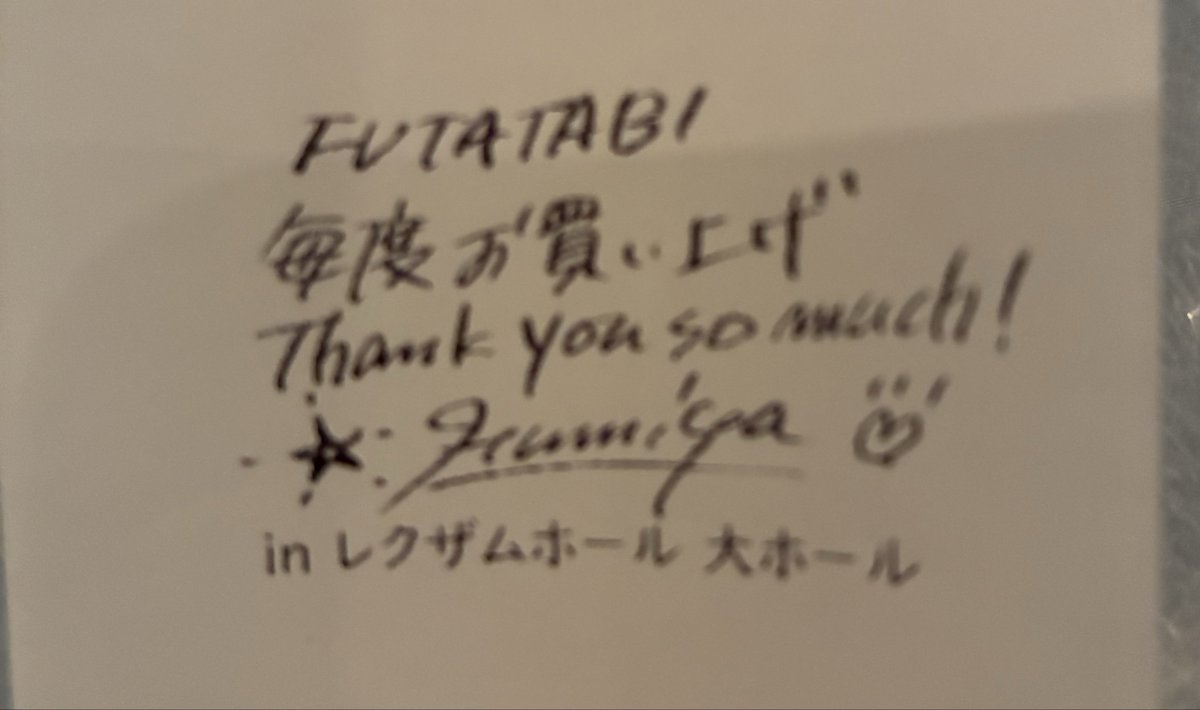 FUTATABI
毎度お買い上げ
Thank you so much!
Fumiya
in レクザムホール 大ホール